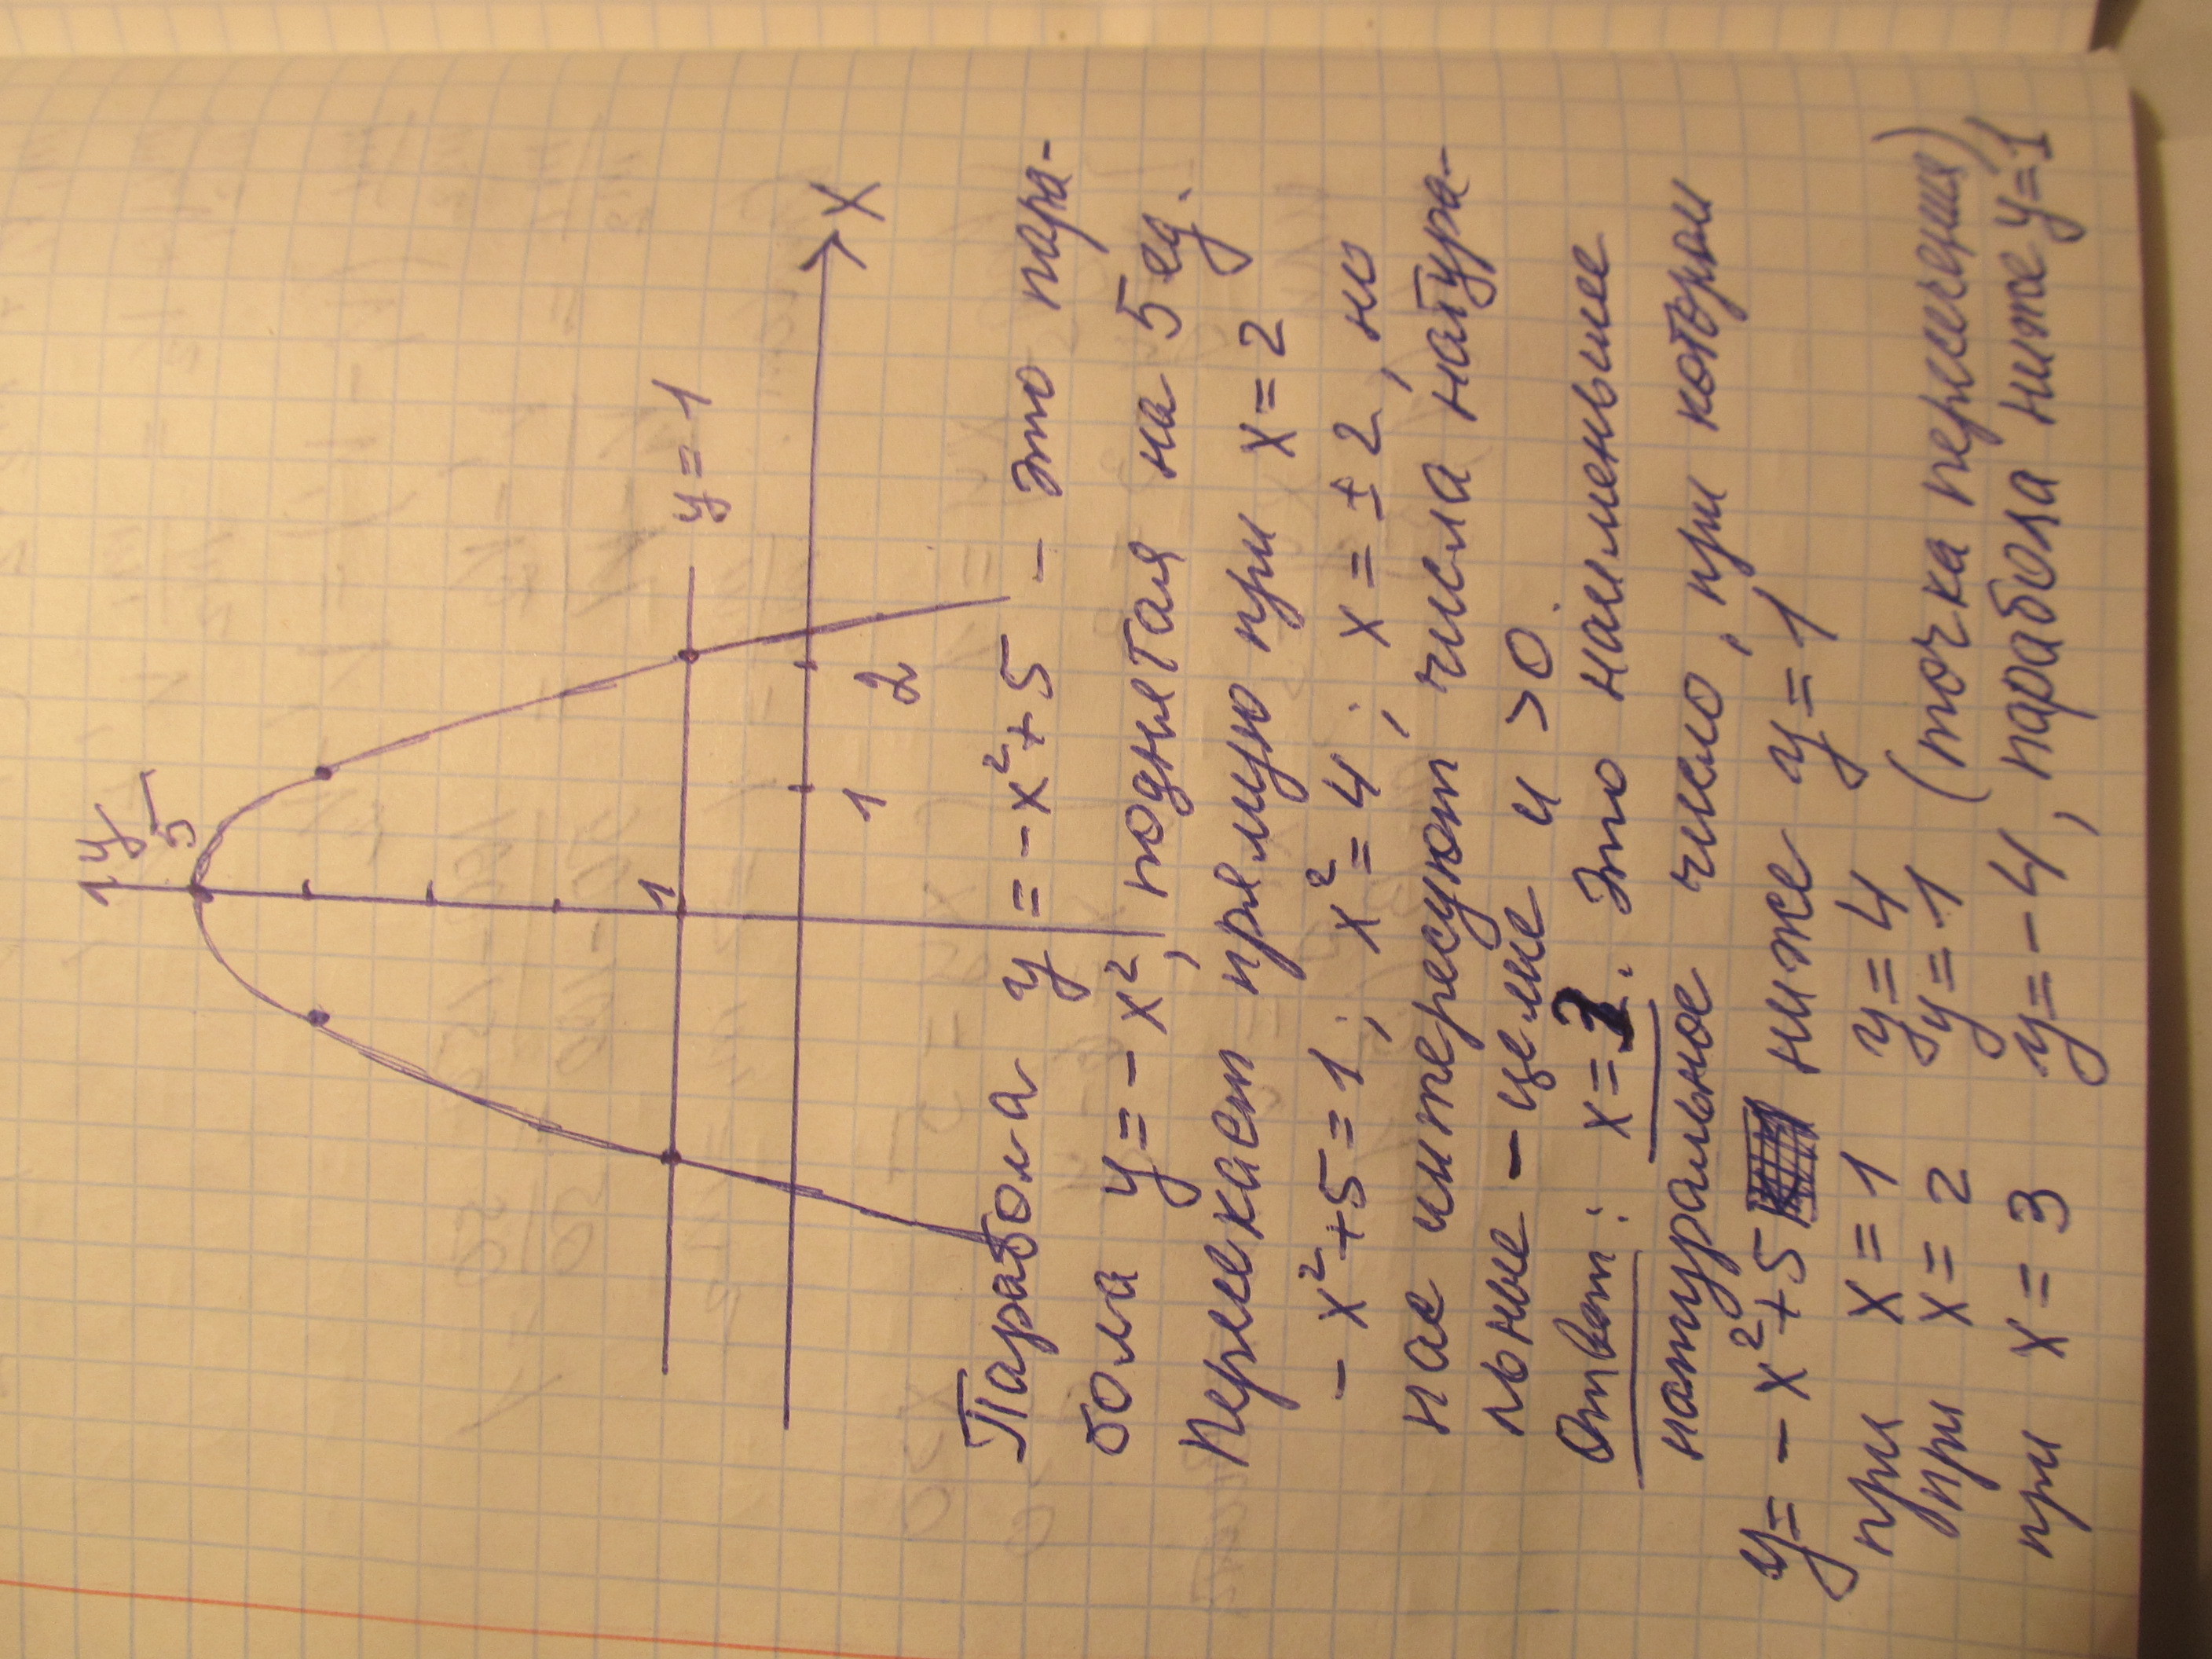 y
5
1
y = 1
1
2
X
Парабола y = -x²+5 - это пара-
бола y = -x², поднятая на 5 ед.
Пересекает прямую при x = 2
-x²+5=1; x²=4; x = ±2, но
нас интересуют числа натура-
льные - целые и >0.
Ответ: x=3. Это наименьшее
натуральное число, при котором
y = -x²+5 ниже y = 1
при x = 1 y = 4
при x = 2 y = 1 (точка пересечения)
при x = 3 y = -4, парабола ниже y=1